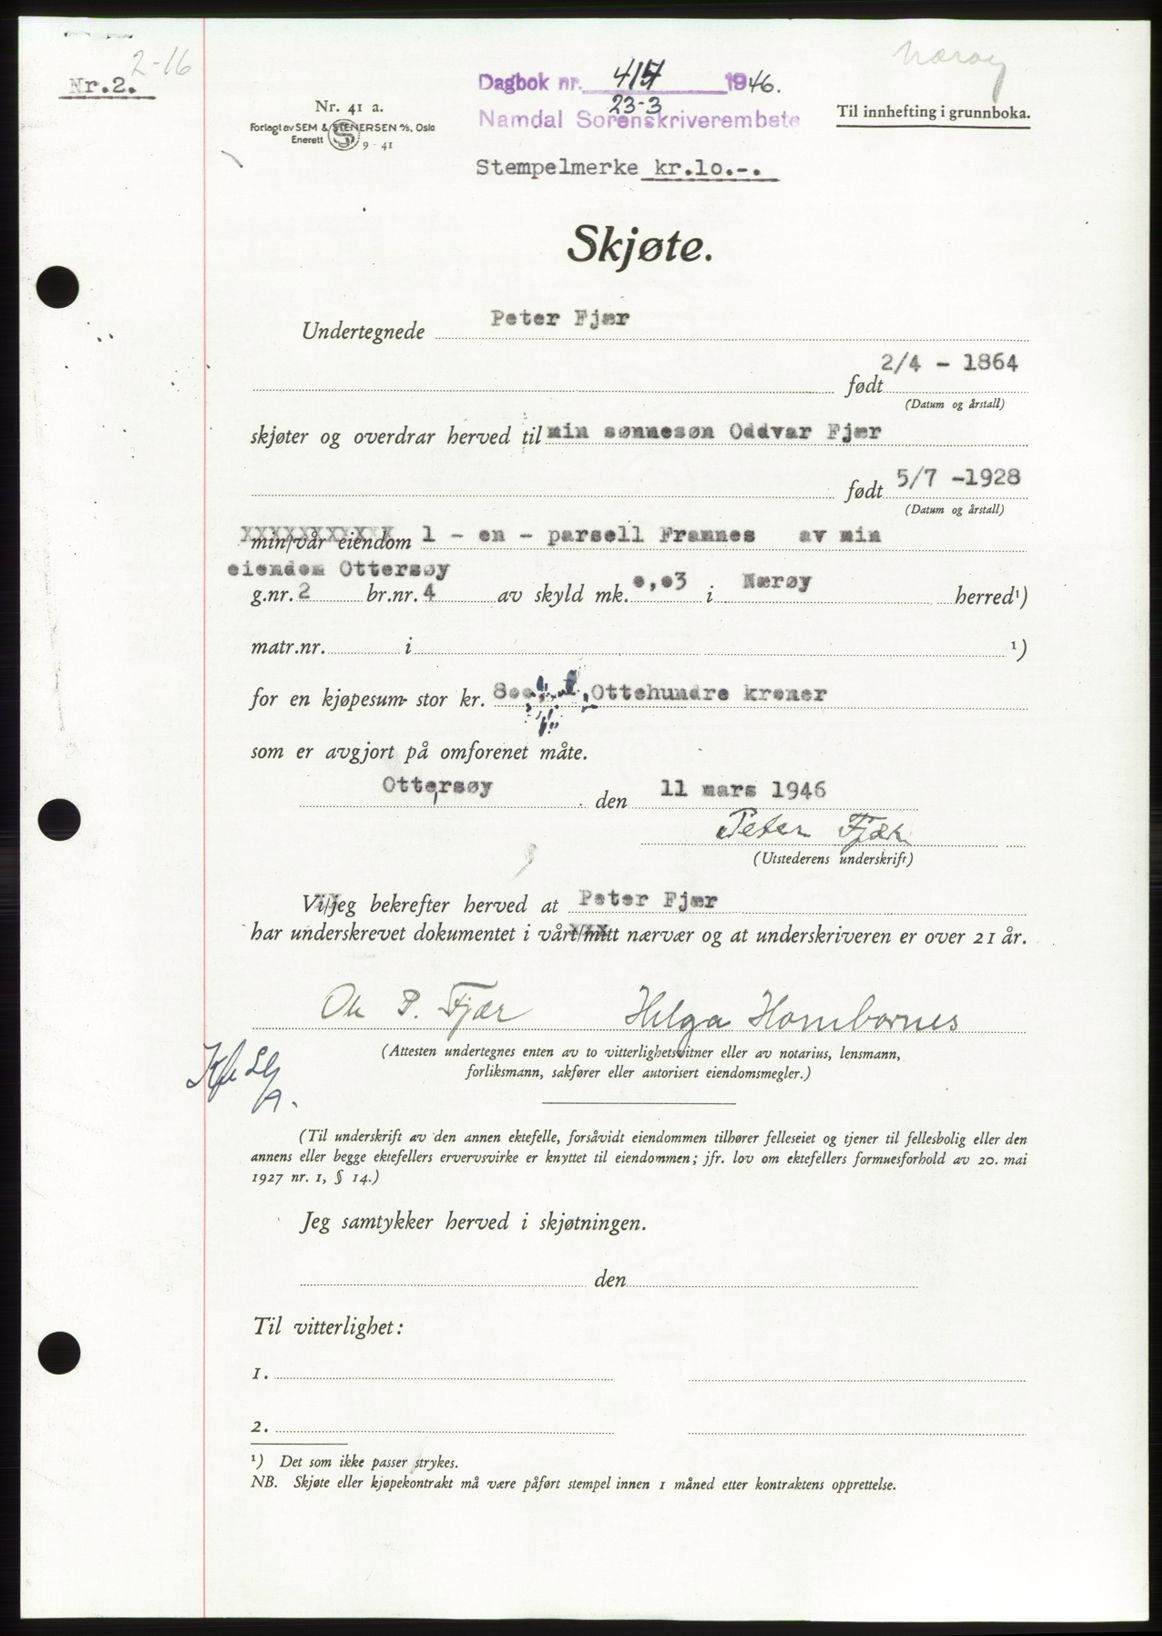 2-16
Nr.2.
Nr. 41 a.
Forlagt av SEM & STENERSEN A/S, Oslo
Enerett 9 - 41
Dagbok nr. 417 1946.
23-3
Namdal Sorenskriverembete
Stempelmerke kr.10.-.
Nærøy
Til innhefting i grunnboka.
Skjøte.
Undertegnede Peter Fjær
født 2/4 - 1864
(Datum og årstall)
skjøter og overdrar herved til min sønnesøn Oddvar Fjær
født 5/7 -1928
(Datum og årstall)
min/vår eiendom 1 - en - parsell Framnes av min
eiendom Ottersøy
g.nr. 2 br.nr. 4 av skyld mk. o,o3 i Nærøy herred¹)
matr.nr. i ¹)
for en kjøpesum stor kr. 8oo Ottehundre kroner
som er avgjort på omforenet måte.
Ottersøy den 11 mars 1946
Peter Fjær
(Utstederens underskrift)
Vi/jeg bekrefter herved at Peter Fjær
har underskrevet dokumentet i vårt/mitt nærvær og at underskriveren er over 21 år.
P. Fjær Helga Hombornes
(Attesten undertegnes enten av to vitterlighetsvitner eller av notarius, lensmann,
forliksmann, sakfører eller autorisert eiendomsmegler.)
(Til underskrift av den annen ektefelle, forsåvidt eiendommen tilhører felleseiet og tjener til fellesbolig eller den
annens eller begge ektefellers ervervsvirke er knyttet til eiendommen; jfr. lov om ektefellers formuesforhold av 20. mai
1927 nr. 1, § 14.)
Jeg samtykker herved i skjøtningen.
den
Til vitterlighet:
1.
2.
¹) Det som ikke passer strykes.
NB. Skjøte eller kjøpekontrakt må være påført stempel innen 1 måned etter kontraktens opprettelse.